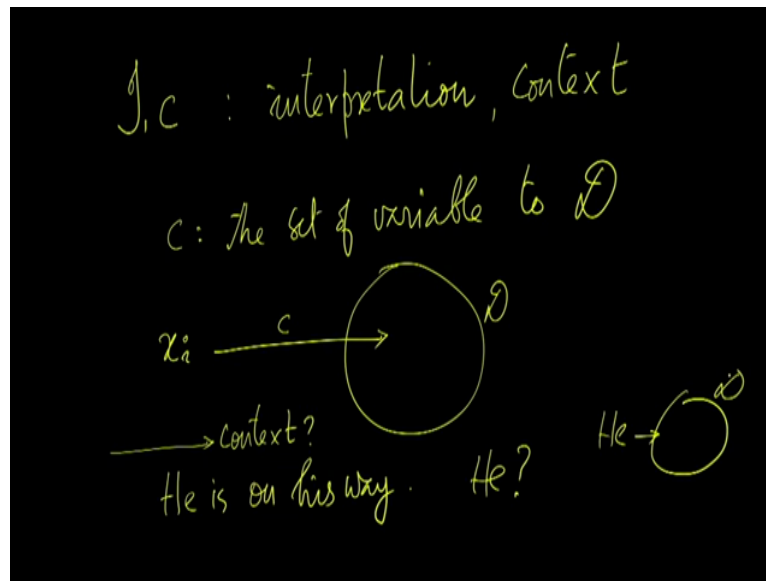 I, C : interpretation, context
C: The set of variable to D
C
D
xi
context?
He is on his way. He?
He
D